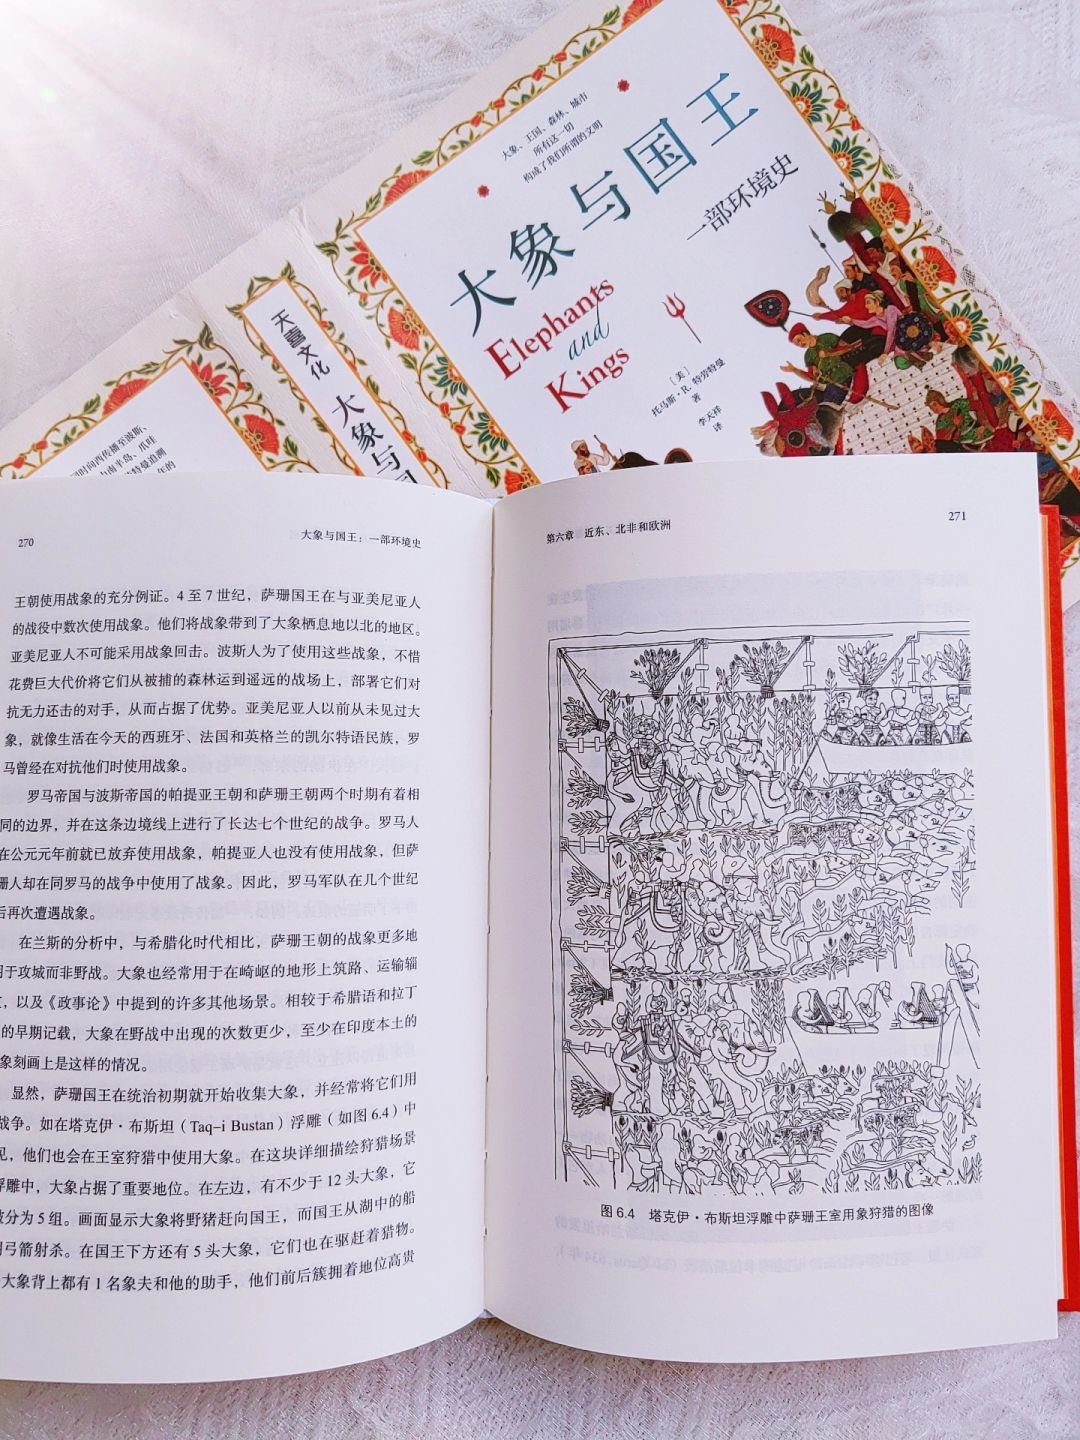 大象、王国、森林、城市
所有这一切
构成了我们所谓的文明
大象与国王
一部环境史
Elephants
and
Kings
[美]
托马斯·R. 特劳特曼
著
李天祥
译
天喜文化
大象与国
时间西传播至波斯、
南半岛、爪哇
特曼追溯
年的
270
大象与国王：一部环境史
王朝使用战象的充分例证。4 至 7 世纪，萨珊国王在与亚美尼亚人
的战役中数次使用战象。他们将战象带到了大象栖息地以北的地区。
亚美尼亚人不可能采用战象回击。波斯人为了使用这些战象，不惜
花费巨大代价将它们从被捕的森林运到遥远的战场上，部署它们对
抗无力还击的对手，从而占据了优势。亚美尼亚人以前从未见过大
象，就像生活在今天的西班牙、法国和英格兰的凯尔特语民族，罗
马曾经在对抗他们时使用战象。
罗马帝国与波斯帝国的帕提亚王朝和萨珊王朝两个时期有着相
同的边界，并在这条边境线上进行了长达七个世纪的战争。罗马人
在公元元年前就已放弃使用战象，帕提亚人也没有使用战象，但萨
珊人却在同罗马的战争中使用了战象。因此，罗马军队在几个世纪
后再次遭遇战象。
在兰斯的分析中，与希腊化时代相比，萨珊王朝的战象更多地
用于攻城而非野战。大象也经常用于在崎岖的地形上筑路、运输辎
，以及《政事论》中提到的许多其他场景。相较于希腊语和拉丁
的早期记载，大象在野战中出现的次数更少，至少在印度本土的
象刻画上是这样的情况。
显然，萨珊国王在统治初期就开始收集大象，并经常将它们用
战争。如在塔克伊·布斯坦（Taq-i Bustan）浮雕（如图 6.4）中
见，他们也会在王室狩猎中使用大象。在这块详细描绘狩猎场景
浮雕中，大象占据了重要地位。在左边，有不少于 12 头大象，它
被分为 5 组。画面显示大象将野猪赶向国王，而国王从湖中的船
用弓箭射杀。在国王下方还有 5 头大象，它们也在驱赶着猎物。
大象背上都有 1 名象夫和他的助手，他们前后簇拥着地位高贵
第六章 近东、北非和欧洲
271
图 6.4 塔克伊·布斯坦浮雕中萨珊王室用象狩猎的图像